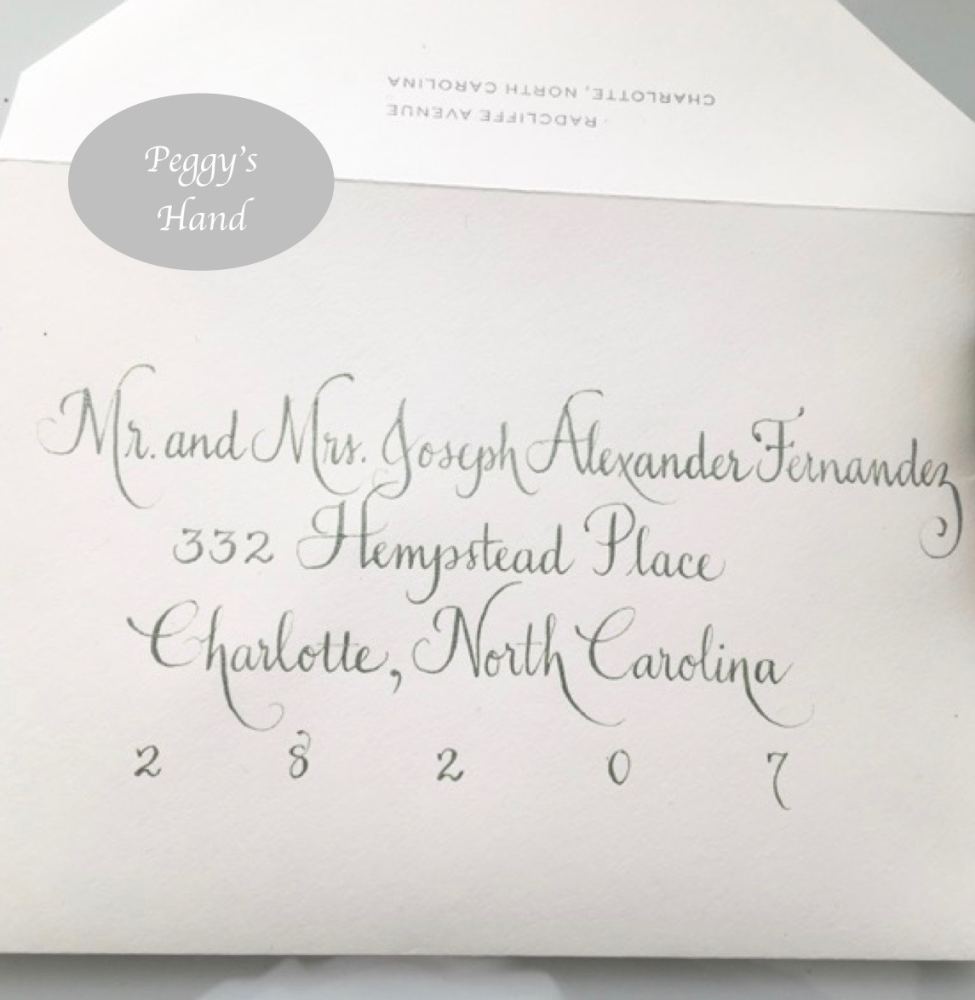 CHARLOTTE, NORTH CAROLINA
RADCLIFFE AVENUE
Peggy's
Hand
Mr. and Mrs. Joseph Alexander Fernandez
332 Hempstead Place
Charlotte, North Carolina
2 8 2 0 7